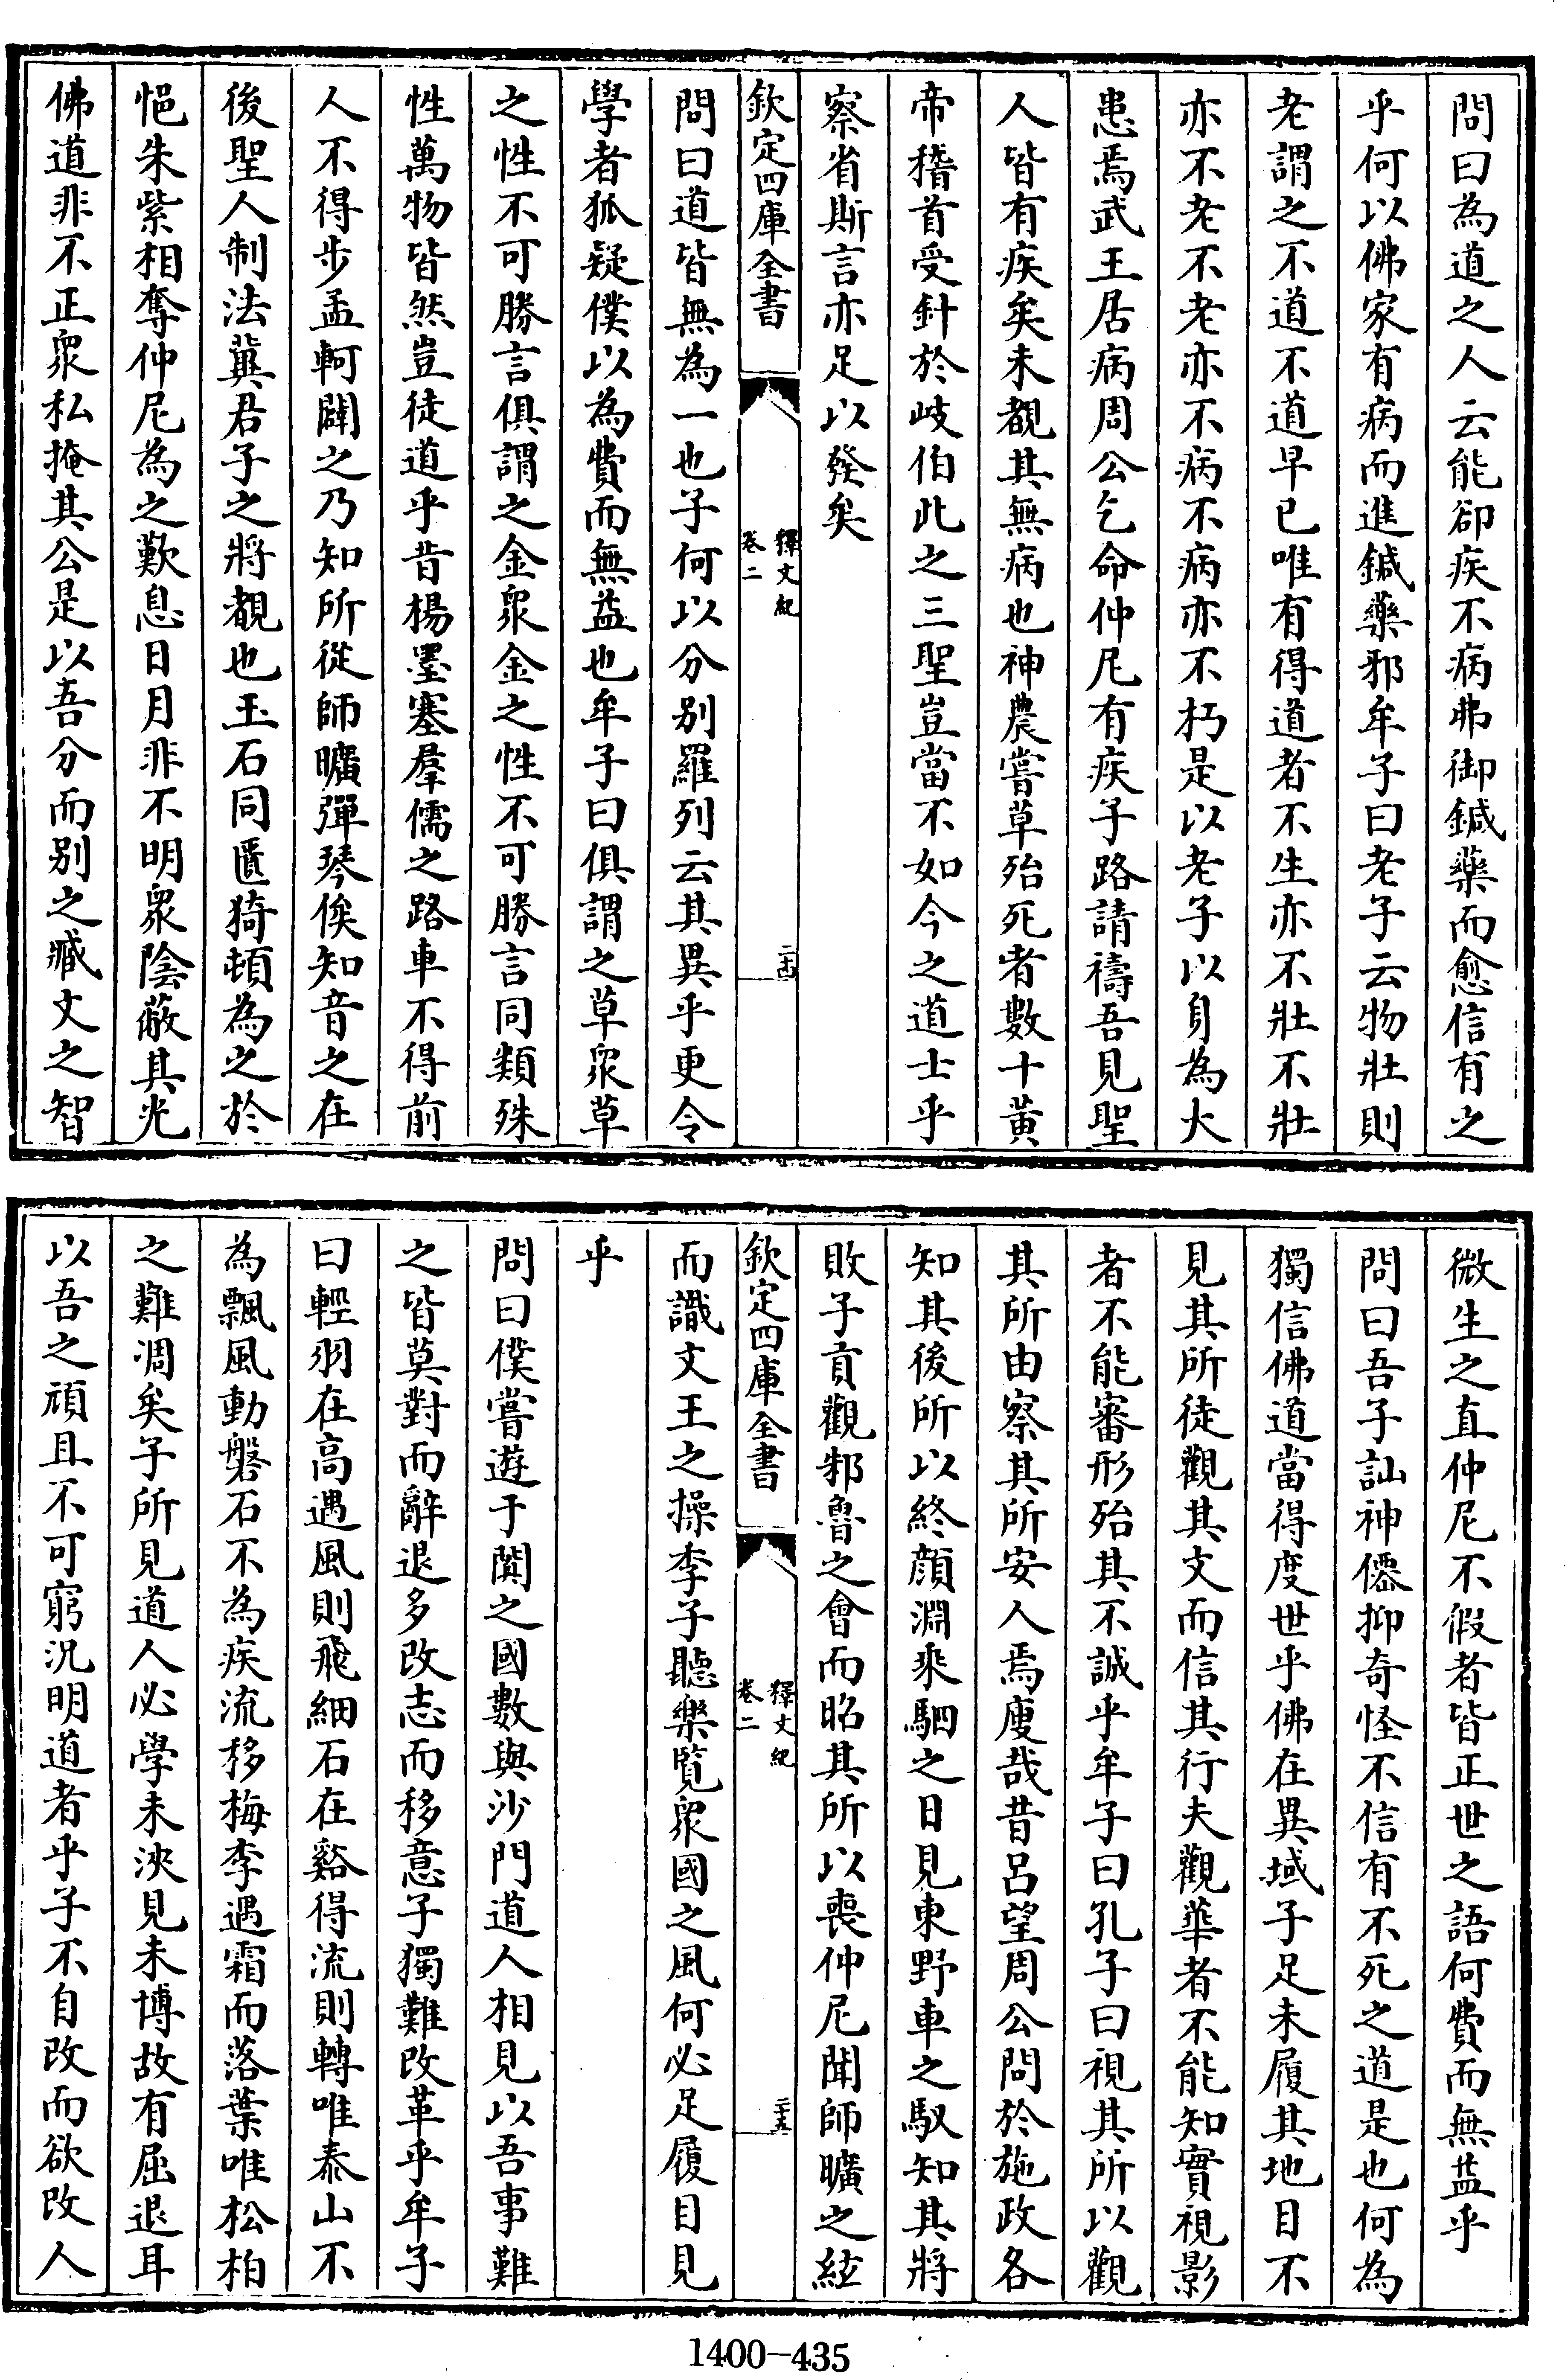 問曰為道之人云能卻疾不病弗御鍼藥而愈信有之
乎何以佛家有病而進鍼藥邪牟子曰老子云物壯則
老謂之不道不道早已唯有得道者不生亦不壯不壯
亦不老不老亦不病不病亦不朽是以老子以身為大
患焉武王居病周公乞命仲尼有疾子路請禱吾見聖
人皆有疾矣未覩其無病也神農嘗草殆死者數十黃
帝稽首受針於岐伯此之三聖豈當不如今之道士乎
察省斯言亦足以發矣
欽定四庫全書
釋文紀
卷二
二十四
問曰道皆無為一也子何以分別羅列云其異乎更令
學者狐疑僕以為費而無益也牟子曰俱謂之草衆草
之性不可勝言俱謂之金衆金之性不可勝言同類殊
性萬物皆然豈徒道乎昔楊墨塞羣儒之路車不得前
人不得步孟軻闢之乃知所從師曠彈琴俟知音之在
後聖人制法冀君子之將覩也玉石同匱猗頓為之於
悒朱紫相奪仲尼為之歎息日月非不明衆陰蔽其光
佛道非不正衆私掩其公是以吾分而别之臧文之智
微生之直仲尼不假者皆正世之語何費而無益乎
問曰吾子訕神僊抑奇怪不信有不死之道是也何為
獨信佛道當得度世乎佛在異域子足未履其地目不
見其所徒觀其文而信其行夫觀華者不能知實視影
者不能審形殆其不誠乎牟子曰孔子曰視其所以觀
其所由察其所安人焉廋哉昔呂望周公問於施政各
知其後所以終顔淵乘駟之日見東野車之馭知其將
敗子貢觀邾魯之會而昭其所以喪仲尼聞師曠之絃
欽定四庫全書
釋文紀
卷二
二十五
而識文王之操季子聽樂覽衆國之風何必足履目見
乎
問曰僕嘗遊于闐之國數與沙門道人相見以吾事難
之皆莫對而辭退多改志而移意子獨難改革乎牟子
曰輕羽在高遇風則飛細石在谿得流則轉唯泰山不
為飄風動磐石不為疾流移梅李遇霜而落葉唯松柏
之難凋矣子所見道人必學未浹見未博故有屈退耳
以吾之頑且不可窮況明道者乎子不自改而欲改人
1400-435